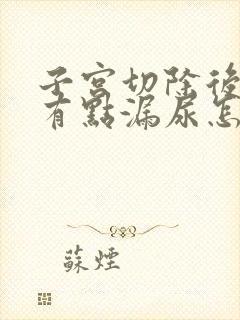 子宮切除後
有點漏尿怎
蘇煙